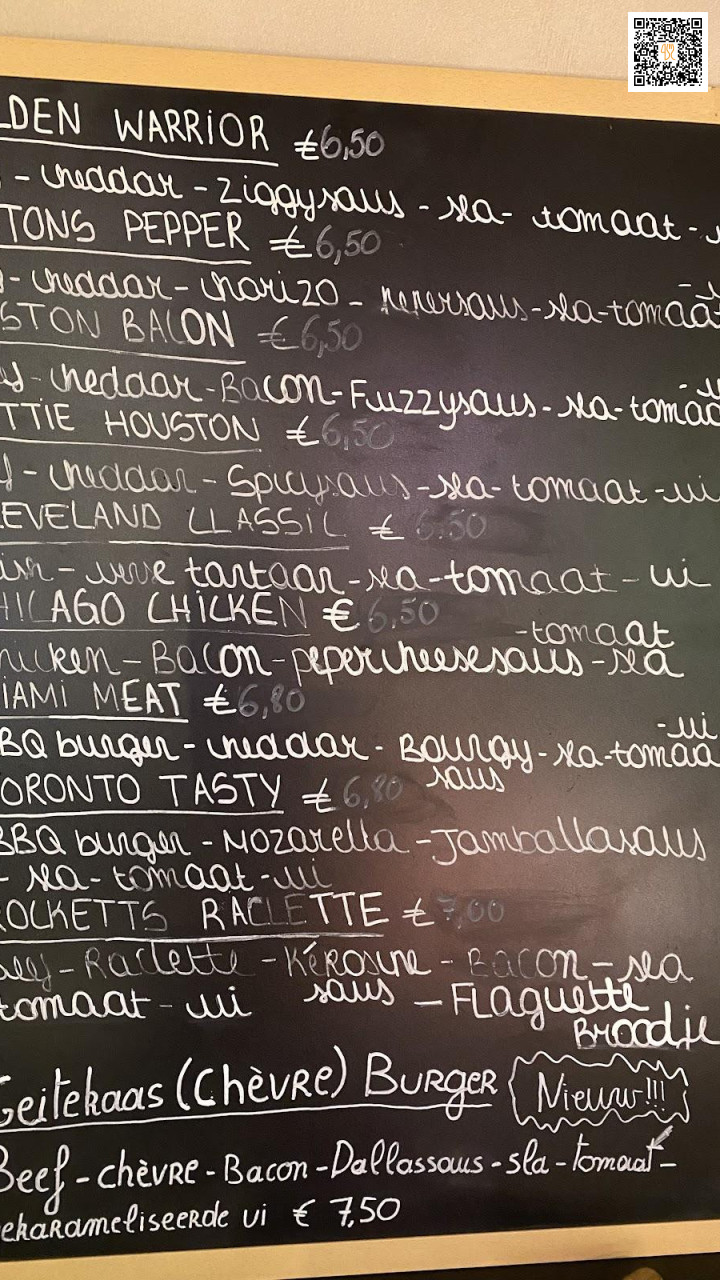 LDEN WARRIOR €6,50
- cheddar - Ziggysaus - sla - tomaat -
TONS PEPPER €6,50
- cheddar - chorizo - pepersaus - sla - tomaat
STON BACON €6,50
- cheddar - Bacon - Fuzzysaus - sla - tomaa
TTIE HOUSTON €6,50
- cheddar - Spicysaus - sla - tomaat - ui
LEVELAND CLASSIC € 6.50
ish - verse tartaar - sla - tomaat - ui
HICAGO CHICKEN € 6,50
- tomaat
hicken - Bacon - pepercheesesaus - sla
IAMI MEAT €6,80
- ui
BBQ burger - cheddar - Bourgy - sla - tomaa
saus
ORONTO TASTY €6,80
BBQ burger - Mozarella - Jamballasaus
- sla - tomaat - ui
ROCKETTS RACLETTE €7,00
eef - Raclette - Kérosine - Bacon - sla
tomaat - ui saus - Flaguette
Broodje
Geitekaas (Chèvre) Burger Nieuw!!!
Beef - chèvre - Bacon - Dallassaus - sla - tomaat -
ekarameliseerde ui € 7,50